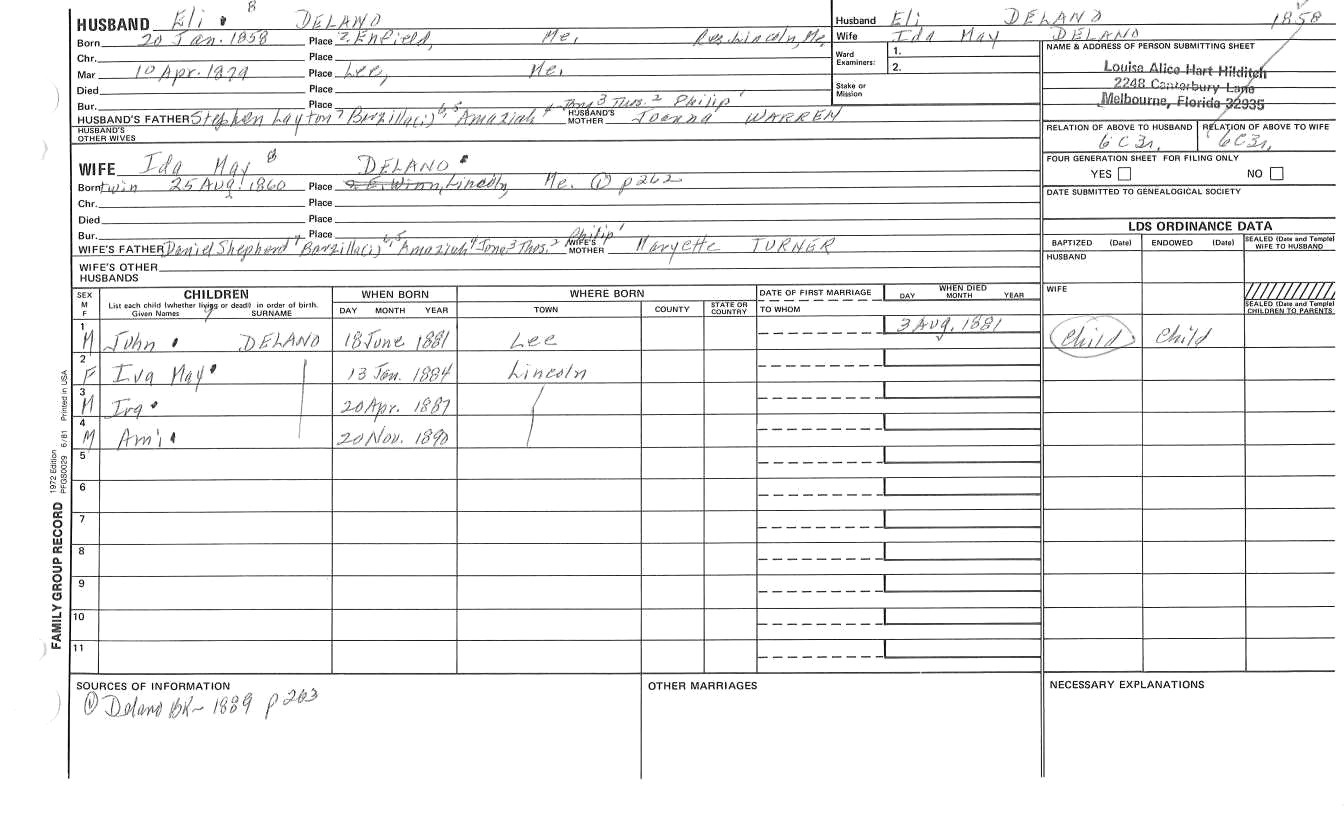 HUSBAND Eli 8 DELANO
Born 20 Jan. 1858 Place ?. Enfield, Me, Res. Lincoln, Me.
Chr. Place
Mar 10 Apr. 1879 Place Lee, Me,
Died Place
Bur. Place
HUSBAND'S FATHER Stephen Layton 7 Barzilla(i) 6,5 Amaziah 4 Jona 3 Thos. 2 Philip 1 HUSBAND'S MOTHER Joanna WARREN
HUSBAND'S OTHER WIVES
WIFE Ida May 8 DELANO
Born twin 25 Aug. 1860 Place Winn, Lincoln, Me. ① p262
Chr. Place
Died Place
Bur. Place
WIFE'S FATHER Daniel Shephard 7 Barzilla(i) 6,5 Amaziah 4 Jona 3 Thos. 2 Philip 1 WIFE'S MOTHER Maryette TURNER
WIFE'S OTHER HUSBANDS
Husband Eli DELANO 1858
Wife Ida May DELANO
Ward Examiners: 1.
2.
Stake or Mission
NAME & ADDRESS OF PERSON SUBMITTING SHEET
Louise Alice Hart Hilditch
2248 Canterbury Lane
Melbourne, Florida 32935
RELATION OF ABOVE TO HUSBAND RELATION OF ABOVE TO WIFE
6C3r, 6C3r,
FOUR GENERATION SHEET FOR FILING ONLY
YES NO
DATE SUBMITTED TO GENEALOGICAL SOCIETY
LDS ORDINANCE DATA
BAPTIZED (Date) ENDOWED (Date) SEALED (Date and Temple) WIFE TO HUSBAND
HUSBAND
WIFE
SEALED (Date and Temple) CHILDREN TO PARENTS
SEX M F CHILDREN List each child (whether living or dead) in order of birth. Given Names SURNAME WHEN BORN DAY MONTH YEAR WHERE BORN TOWN COUNTY STATE OR COUNTRY DATE OF FIRST MARRIAGE TO WHOM WHEN DIED DAY MONTH YEAR
1 M John DELANO 18 June 1881 Lee 3 Aug. 1881 Child Child
2 F Iva May 13 Jan. 1884 Lincoln
3 M Ira 20 Apr. 1887
4 M Ami 20 Nov. 1890
5
6
7
8
9
10
11
FAMILY GROUP RECORD 1972 Edition PFGS0029 6/81 Printed in USA
SOURCES OF INFORMATION
① Delano BK- 1889 p263
OTHER MARRIAGES
NECESSARY EXPLANATIONS